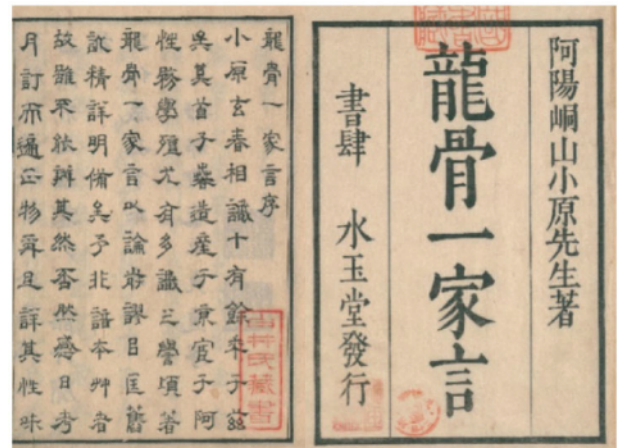 阿陽峒山小原先生著
龍骨一家言
書肆 水玉堂發行
龍骨一家言序
小原玄春相識十有餘年于茲
矣其首子春造產于東宦于阿
性務學殖尤有多識之譽頃著
龍骨一家言以論嵜謬目匡舊
說精詳明備矣予非諳本艸者
故雖不能辨其然否然隱目考
月訂而遍正物弁且詳其性味
山井氏藏書